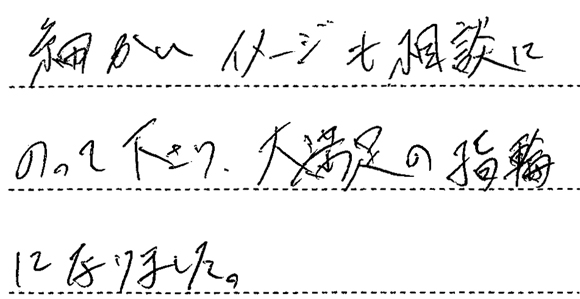 細かいイメージも相談に
のって下さり、大満足の指輪
になりました。